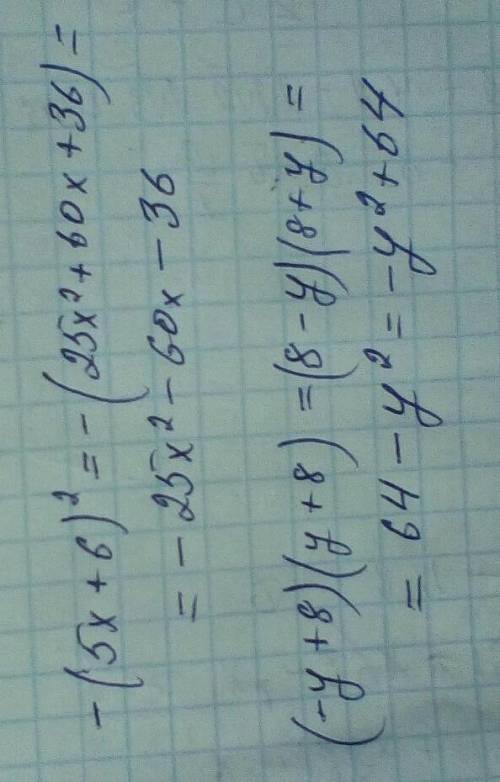 -(5x+6)² = -(25x²+60x+36) =
= -25x² - 60x - 36
(-y+8)(y+8) = (8-y)(8+y) =
= 64 - y² = -y² + 64